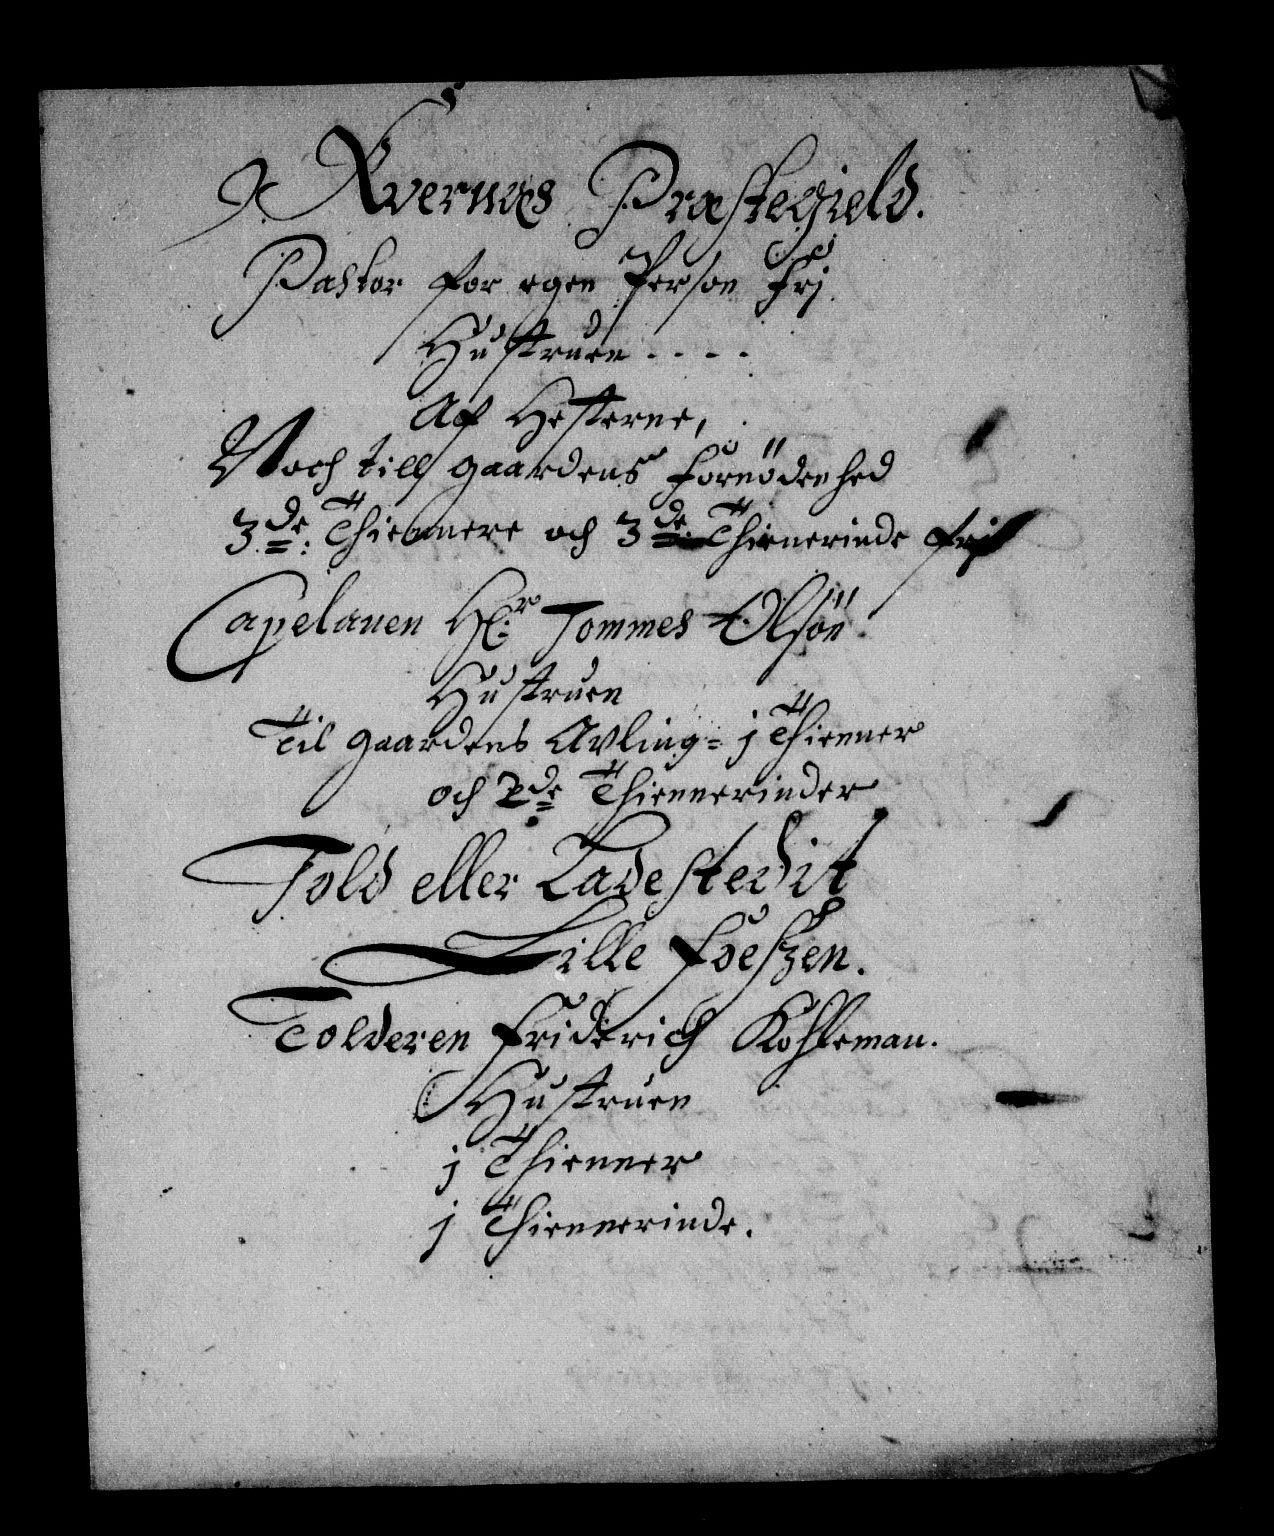 J Kvernæs Præstegield.
Pastor for egen Person frj
Hustruen . . . .
Af Hesterne,
Noch till gaardens fornödenhed
3de: Thiennere och 3de Thienerinde fri
Capelanen Hr. Tommes Olsön
Hustruen
Til gaardens Avling = j Thienner
och 2de Thiennerinder
Told eller Ladestedit
Lille foeszen.
Tolderen friderich Kohlleman.
Hustruen
j Thienner
j Thiennerinde.